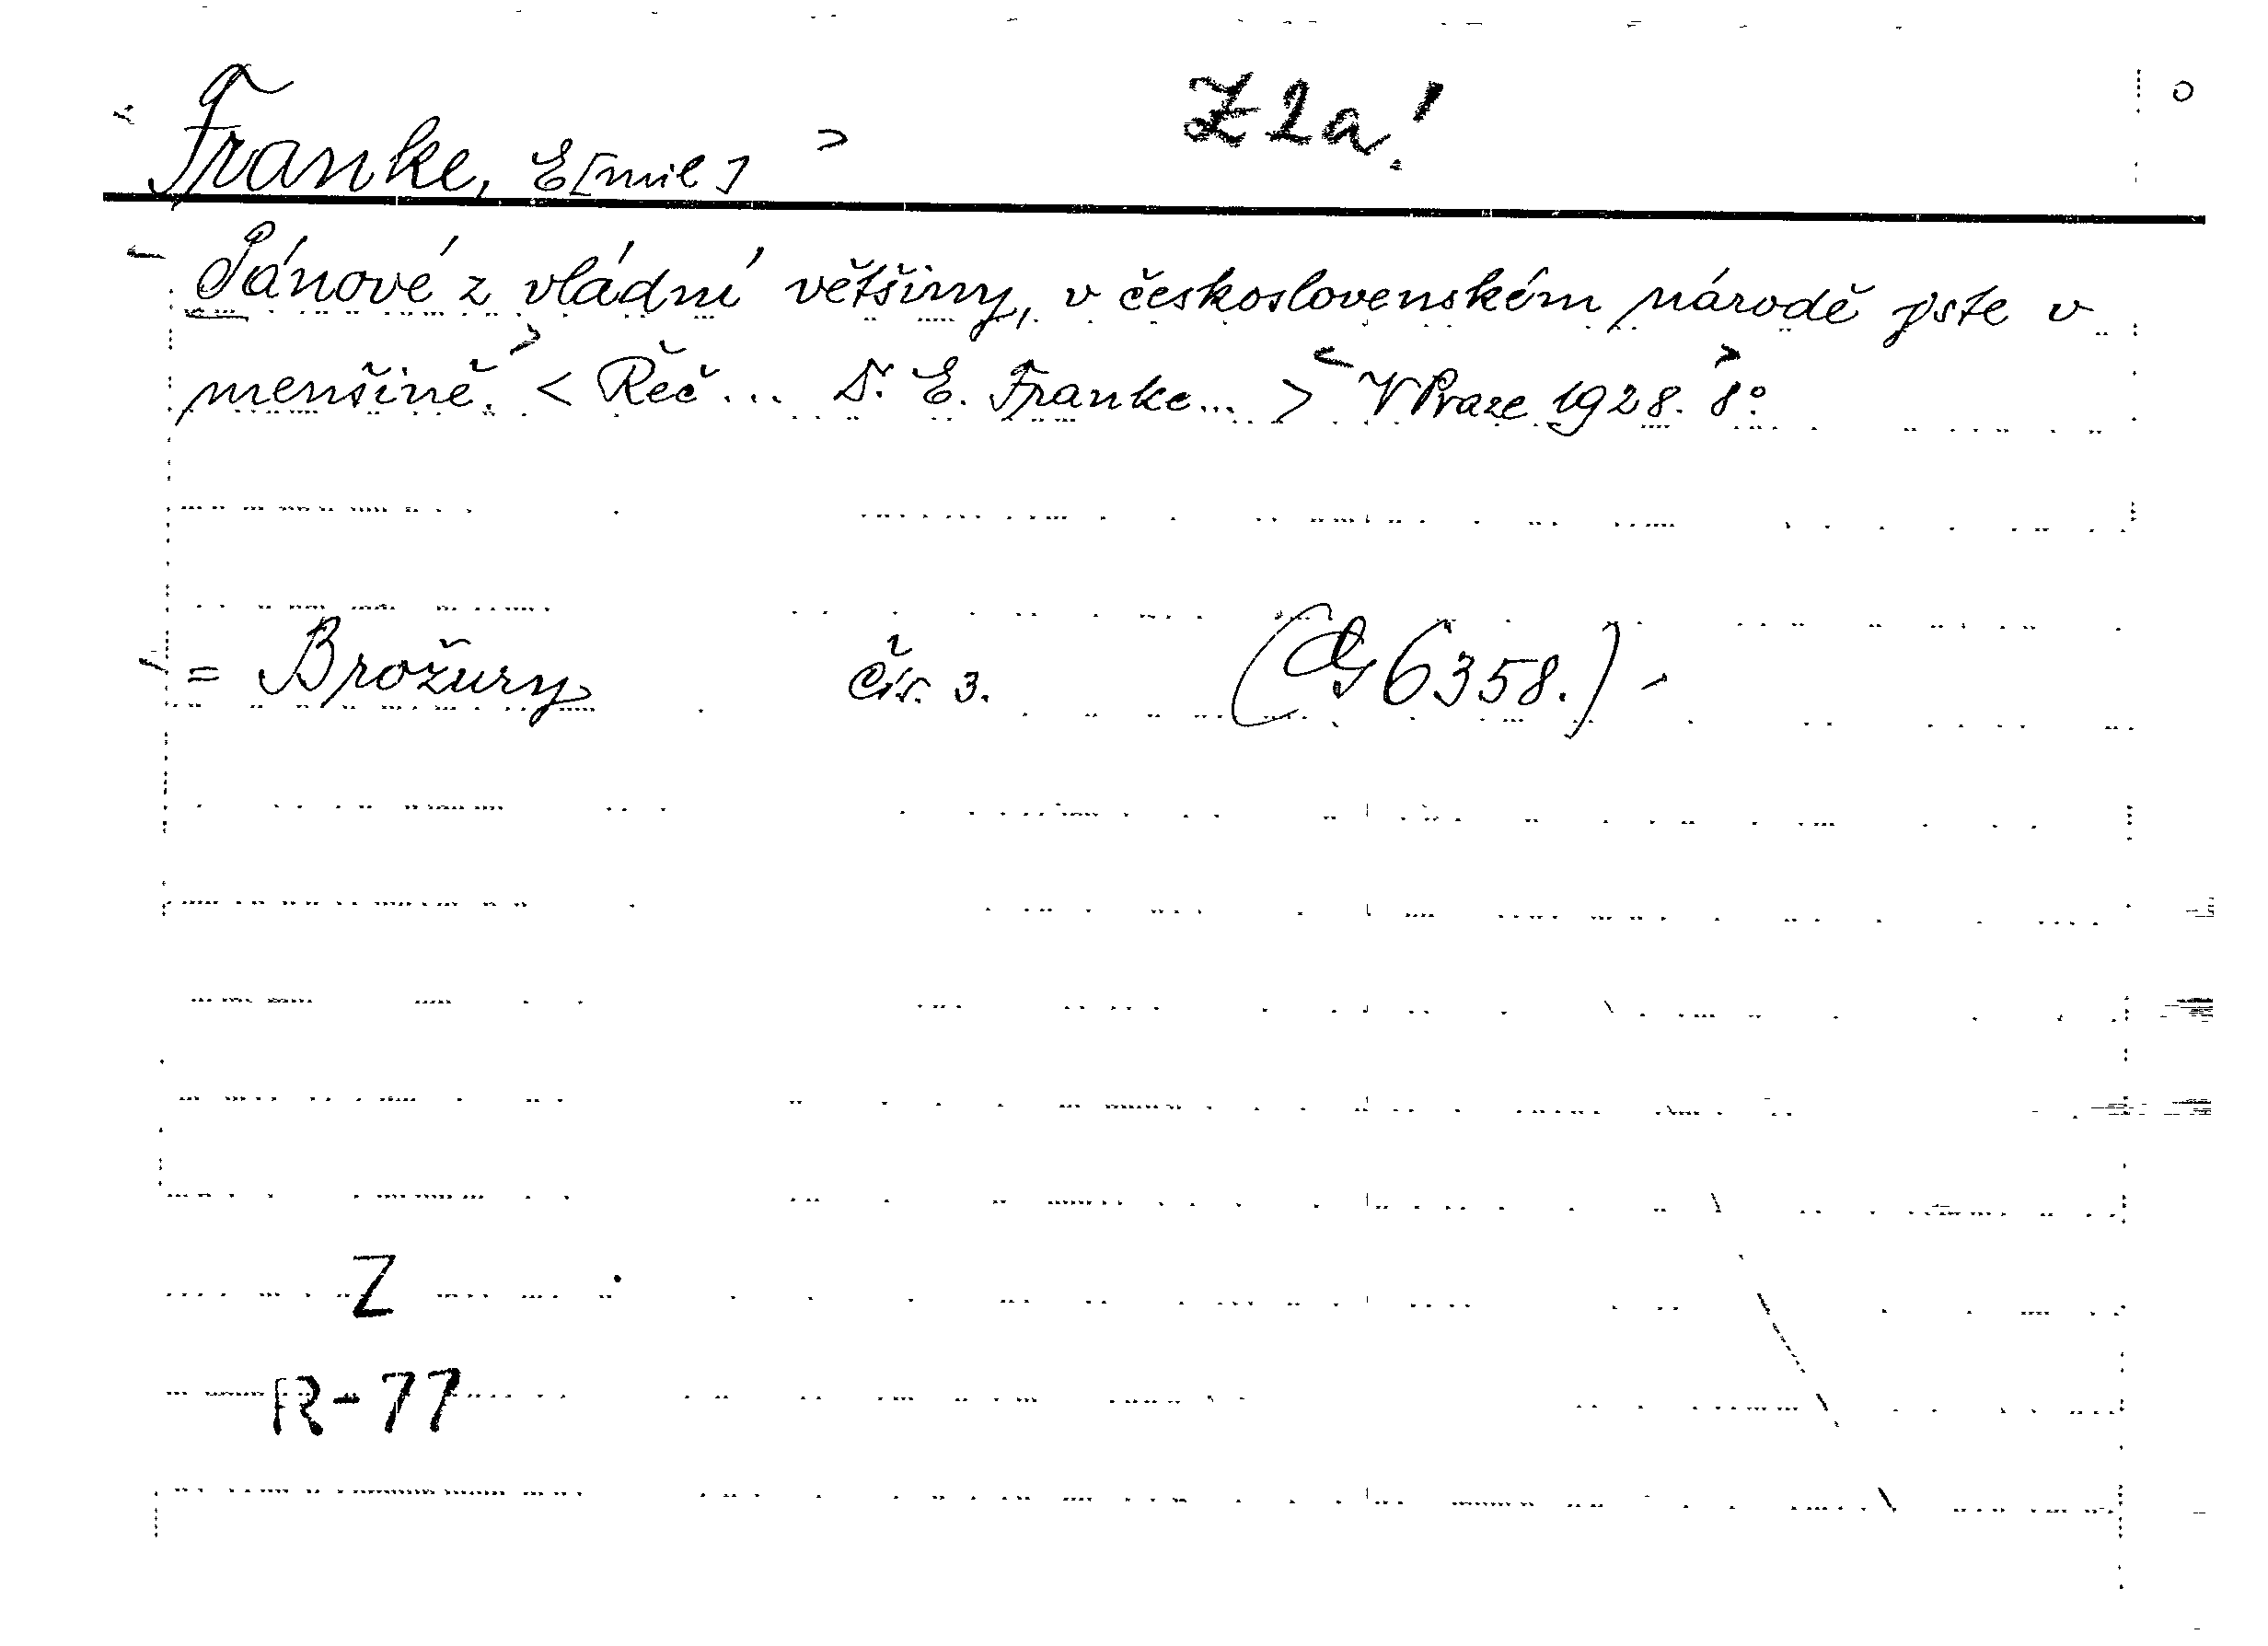 Franke, E[mil] Z 2a!
Pánové z vládní většiny, v československém národě jste v
menšině. < Řeč... Dr. E. Franke... > V Praze 1928. 8°.
= Brožury čís. 3. 6358.)
Z
R-77